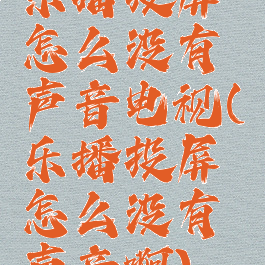 乐播投屏
怎么没有
声音电视(
乐播投屏
怎么没有
声音啊)